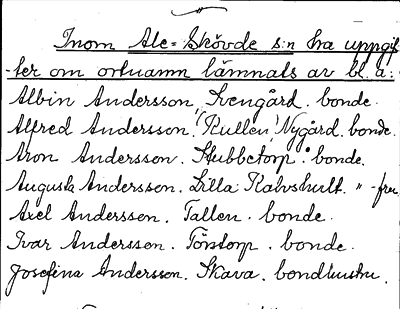 Inom Ale-Skövde s:n ha uppgif-
ter om ortnamn lämnats av bl. a:
Albin Andersson, Svengård. bonde.
Alfred Andersson. "Rullen", Nygård. bonde.
Aron Andersson. Stubbetorp. bonde.
Augusta Andersson. Lilla Kalvshult. " -fru.
Axel Andersson. Tallen. bonde.
Ivar Andersson. Törstorp. bonde.
Josefina Andersson. Skava. bondhustru.